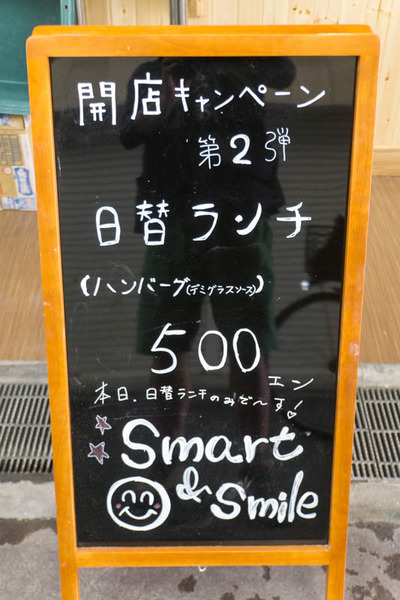 開店キャンペーン
第2弾
日替ランチ
(ハンバーグ(デミグラスソース))
500エン
本日、日替ランチのみで〜す!
Smart
& Smile